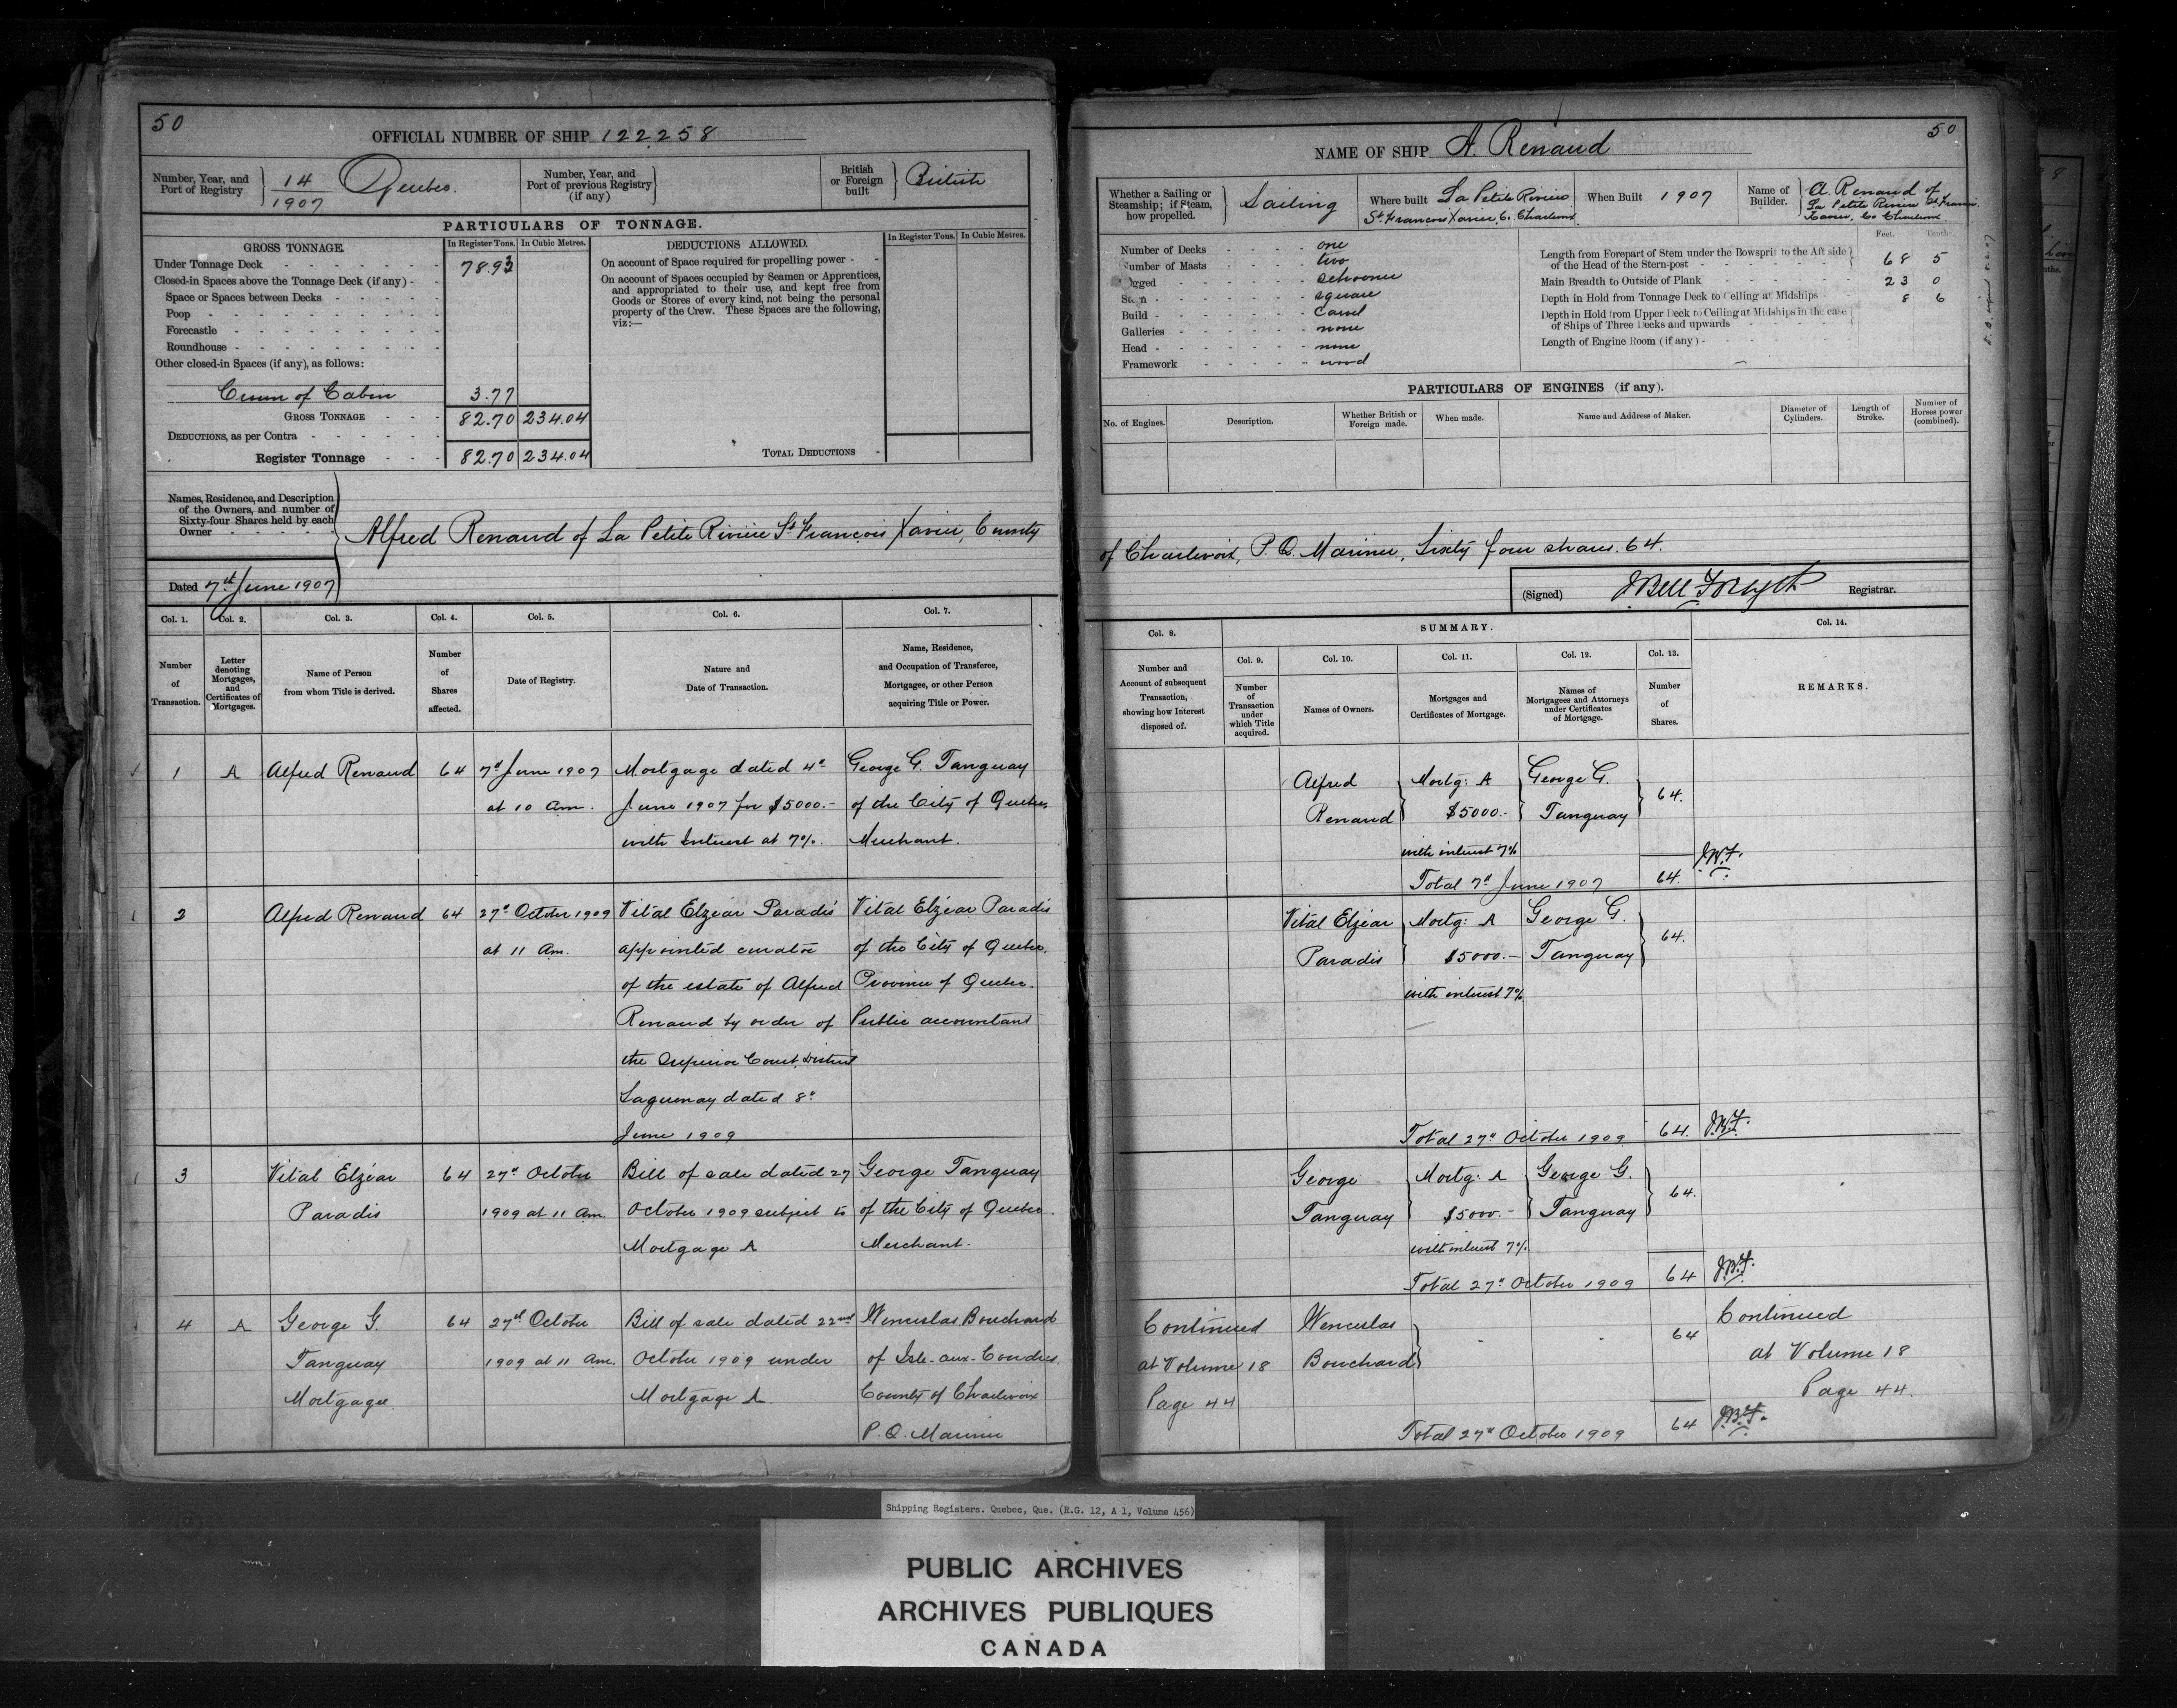 50
OFFICIAL NUMBER OF SHIP 122258
Number, Year, and Port of Registry 14/1907 Quebec.
Number, Year, and Port of previous Registry (if any)
British or Foreign built British
PARTICULARS OF TONNAGE.
GROSS TONNAGE.
In Register Tons. In Cubic Metres.
DEDUCTIONS ALLOWED.
In Register Tons. In Cubic Metres.
Under Tonnage Deck 78.93
Closed-in Spaces above the Tonnage Deck (if any)
Space or Spaces between Decks
Poop
Forecastle
Roundhouse
Other closed-in Spaces (if any), as follows:
Crown of Cabin 3.77
GROSS TONNAGE 82.70 234.04
DEDUCTIONS, as per Contra
Register Tonnage 82.70 234.04
On account of Space required for propelling power
On account of Spaces occupied by Seamen or Apprentices,
and appropriated to their use, and kept free from
Goods or Stores of every kind, not being the personal
property of the Crew. These Spaces are the following,
viz:—
TOTAL DEDUCTIONS
Names, Residence, and Description
of the Owners, and number of
Sixty-four Shares held by each
Owner
Alfred Renaud of La Petite Rivière St François Xavier, County
Dated 7th June 1907
Col. 1. Col. 2. Col. 3. Col. 4. Col. 5. Col. 6. Col. 7.
Number of Transaction.
Letter denoting Mortgages, and Certificates of Mortgages.
Name of Person from whom Title is derived.
Number of Shares affected.
Date of Registry.
Nature and Date of Transaction.
Name, Residence, and Occupation of Transferee, Mortgagee, or other Person acquiring Title or Power.
1 A Alfred Renaud 64 7th June 1907 Mortgage dated 4th George G. Tanguay
at 10 am. June 1907 for $5000.- of the City of Quebec
with Interest at 7%. Merchant.
2 Alfred Renaud 64 27th October 1909 Vital Elzéar Paradis Vital Elzéar Paradis
at 11 Am. appointed curator of the City of Quebec.
of the estate of Alfred Province of Quebec.
Renaud by order of Public accountant
the Superior Court, District
Saguenay dated 8th
June 1909
3 Vital Elzéar 64 27th October Bill of sale dated 27 George Tanguay
Paradis 1909 at 11 Am. October 1909 subject to of the City of Quebec.
Mortgage A Merchant.
4 A George G. 64 27th October Bill of sale dated 22nd Wenceslas Bouchard
Tanguay 1909 at 11 Am. October 1909 under of Isle-aux-Coudres.
Mortgagee. Mortgage A. County of Charlevoix
P.Q. Mariner
50
NAME OF SHIP A. Renaud
Whether a Sailing or Steamship; if Steam, how propelled. Sailing
Where built La Petite Riviere
St. Francois Xavier, Co. Charlevoix
When Built 1907
Name of Builder. A. Renaud of
La Petite Riviere St Francois
Xavier, Co Charlevoix
Number of Decks one
Number of Masts two
Rigged schooner
Stern square
Build carvel
Galleries none
Head none
Framework wood
Feet. Tenth
Length from Forepart of Stem under the Bowsprit to the Aft side
of the Head of the Stern-post 68 5
Main Breadth to Outside of Plank 23 0
Depth in Hold from Tonnage Deck to Ceiling at Midships 8 6
Depth in Hold from Upper Deck to Ceiling at Midships in the case
of Ships of Three Decks and upwards
Length of Engine Room (if any)
PARTICULARS OF ENGINES (if any).
No. of Engines.
Description.
Whether British or Foreign made.
When made.
Name and Address of Maker.
Diameter of Cylinders.
Length of Stroke.
Number of Horses power (combined).
of Charlevoix, P.Q. Mariner, Sixty four shares. 64.
(Signed) J Bell Forsyth Registrar.
Col. 8. SUMMARY. Col. 14.
Col. 9. Col. 10. Col. 11. Col. 12. Col. 13.
Number and Account of subsequent Transaction, showing how Interest disposed of.
Number of Transaction under which Title acquired.
Names of Owners.
Mortgages and Certificates of Mortgage.
Names of Mortgagees and Attorneys under Certificates of Mortgage.
Number of Shares.
REMARKS.
Alfred Mortg: A George G. 64.
Renaud $5000.- Tanguay
with interest 7%
Total 7th June 1907 64. J.B.F.
Vital Elzéar Mortg: A George G. 64.
Paradis $5000.- Tanguay
with interest 7%
Total 27th October 1909 64. J.B.F.
George Mortg: A George G. 64.
Tanguay $5000.- Tanguay
with interest 7%.
Total 27th October 1909 64 J.B.F.
Continued Wenceslas 64 Continued
at Volume 18 Bouchard at Volume 18
Page 44 Page 44.
Total 27th October 1909 64 J.B.F.
Shipping Registers. Quebec, Que. (R.G. 12, A 1, Volume 456)
PUBLIC ARCHIVES
ARCHIVES PUBLIQUES
CANADA